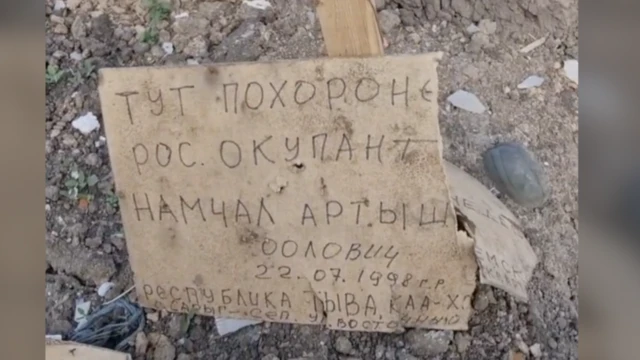 ТУТ ПОХОРОНЕ
РОС. ОКУПАНТ
НАМЧАЛ АРТЫШ
ООЛОВИЧ
22.07.1998 г.р.
РЕСПУБЛИКА ТЫВА, КАА-Х
СЕЛ. У.